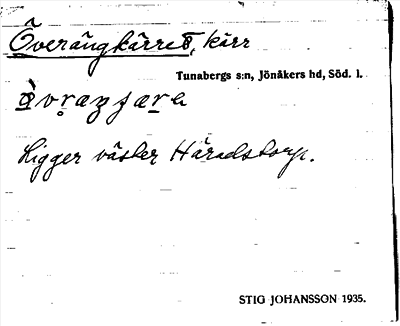 Överängkärret, kärr
Tunabergs s:n, Jönåkers hd, Söd. l.
Ligger väster Häradstorp.
STIG JOHANSSON 1935.